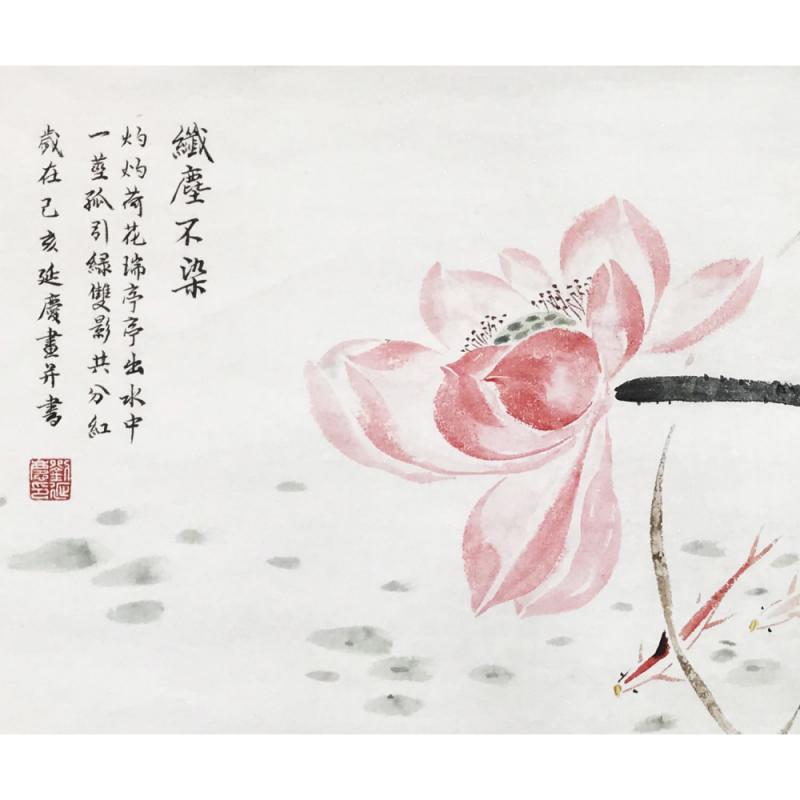 纖塵不染
灼灼荷花瑞亭亭出水中
一莖孤引綠雙影共分紅
歲在己亥延慶畫并書
劉延慶印